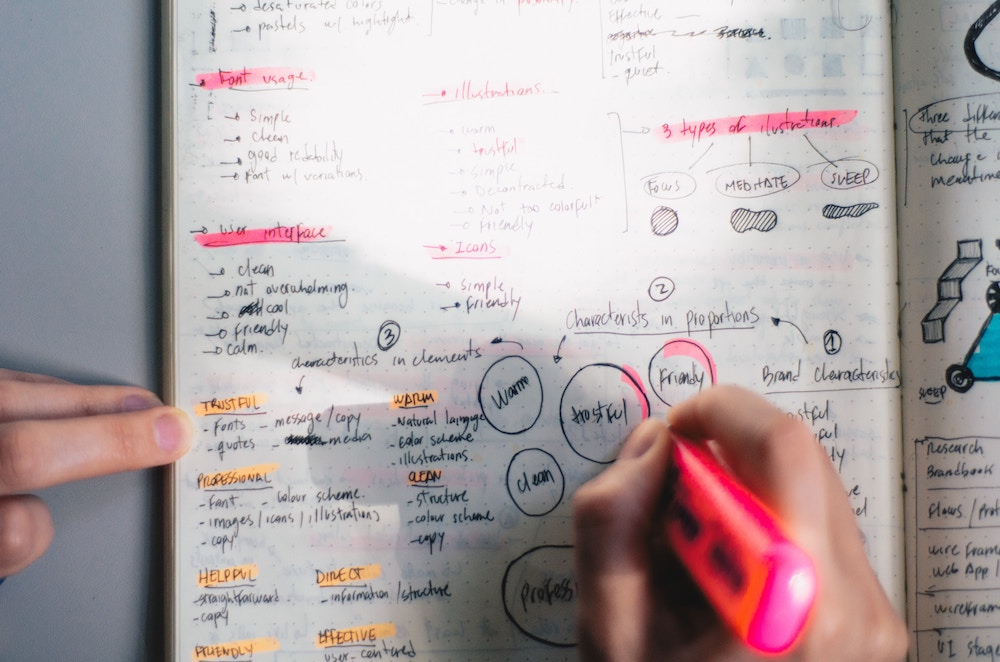 desaturated colors
pastels w/ hightlight
Effective
trustful
- quiet.
Font usage
simple
clean
good redability
Font w/ variations
Illustrations
warm
trustful
simple
Decontracted
Not too colorfull
Friendly
3 types of ilustrations.
FOCUS
MEDITATE
SLEEP
User interface
clean
not overwhelming.
cool
Friendly
calm.
Icons
simple
Friendly
2
Characterists in proportions
3
characteristics in elements
1
Brand characteristics
Warm
trustful
Friendly
clean
TRUSTFUL
- Fonts
- message/copy
- quotes
- media
WARM
- Natural language
- Color scheme
- illustrations.
PROFESSIONAL
- Font.
- colour scheme.
- images/icons/illustrations
- copy
CLEAN
- structure
- colour scheme
- copy
HELPFUL
- straightforward
- copy
DIRECT
- information/structure
FRIENDLY
EFFECTIVE
user-centered
three
that the
change
meantime
SLEEP
Research
Brandbook
Flows /
wire
Web App /
UI